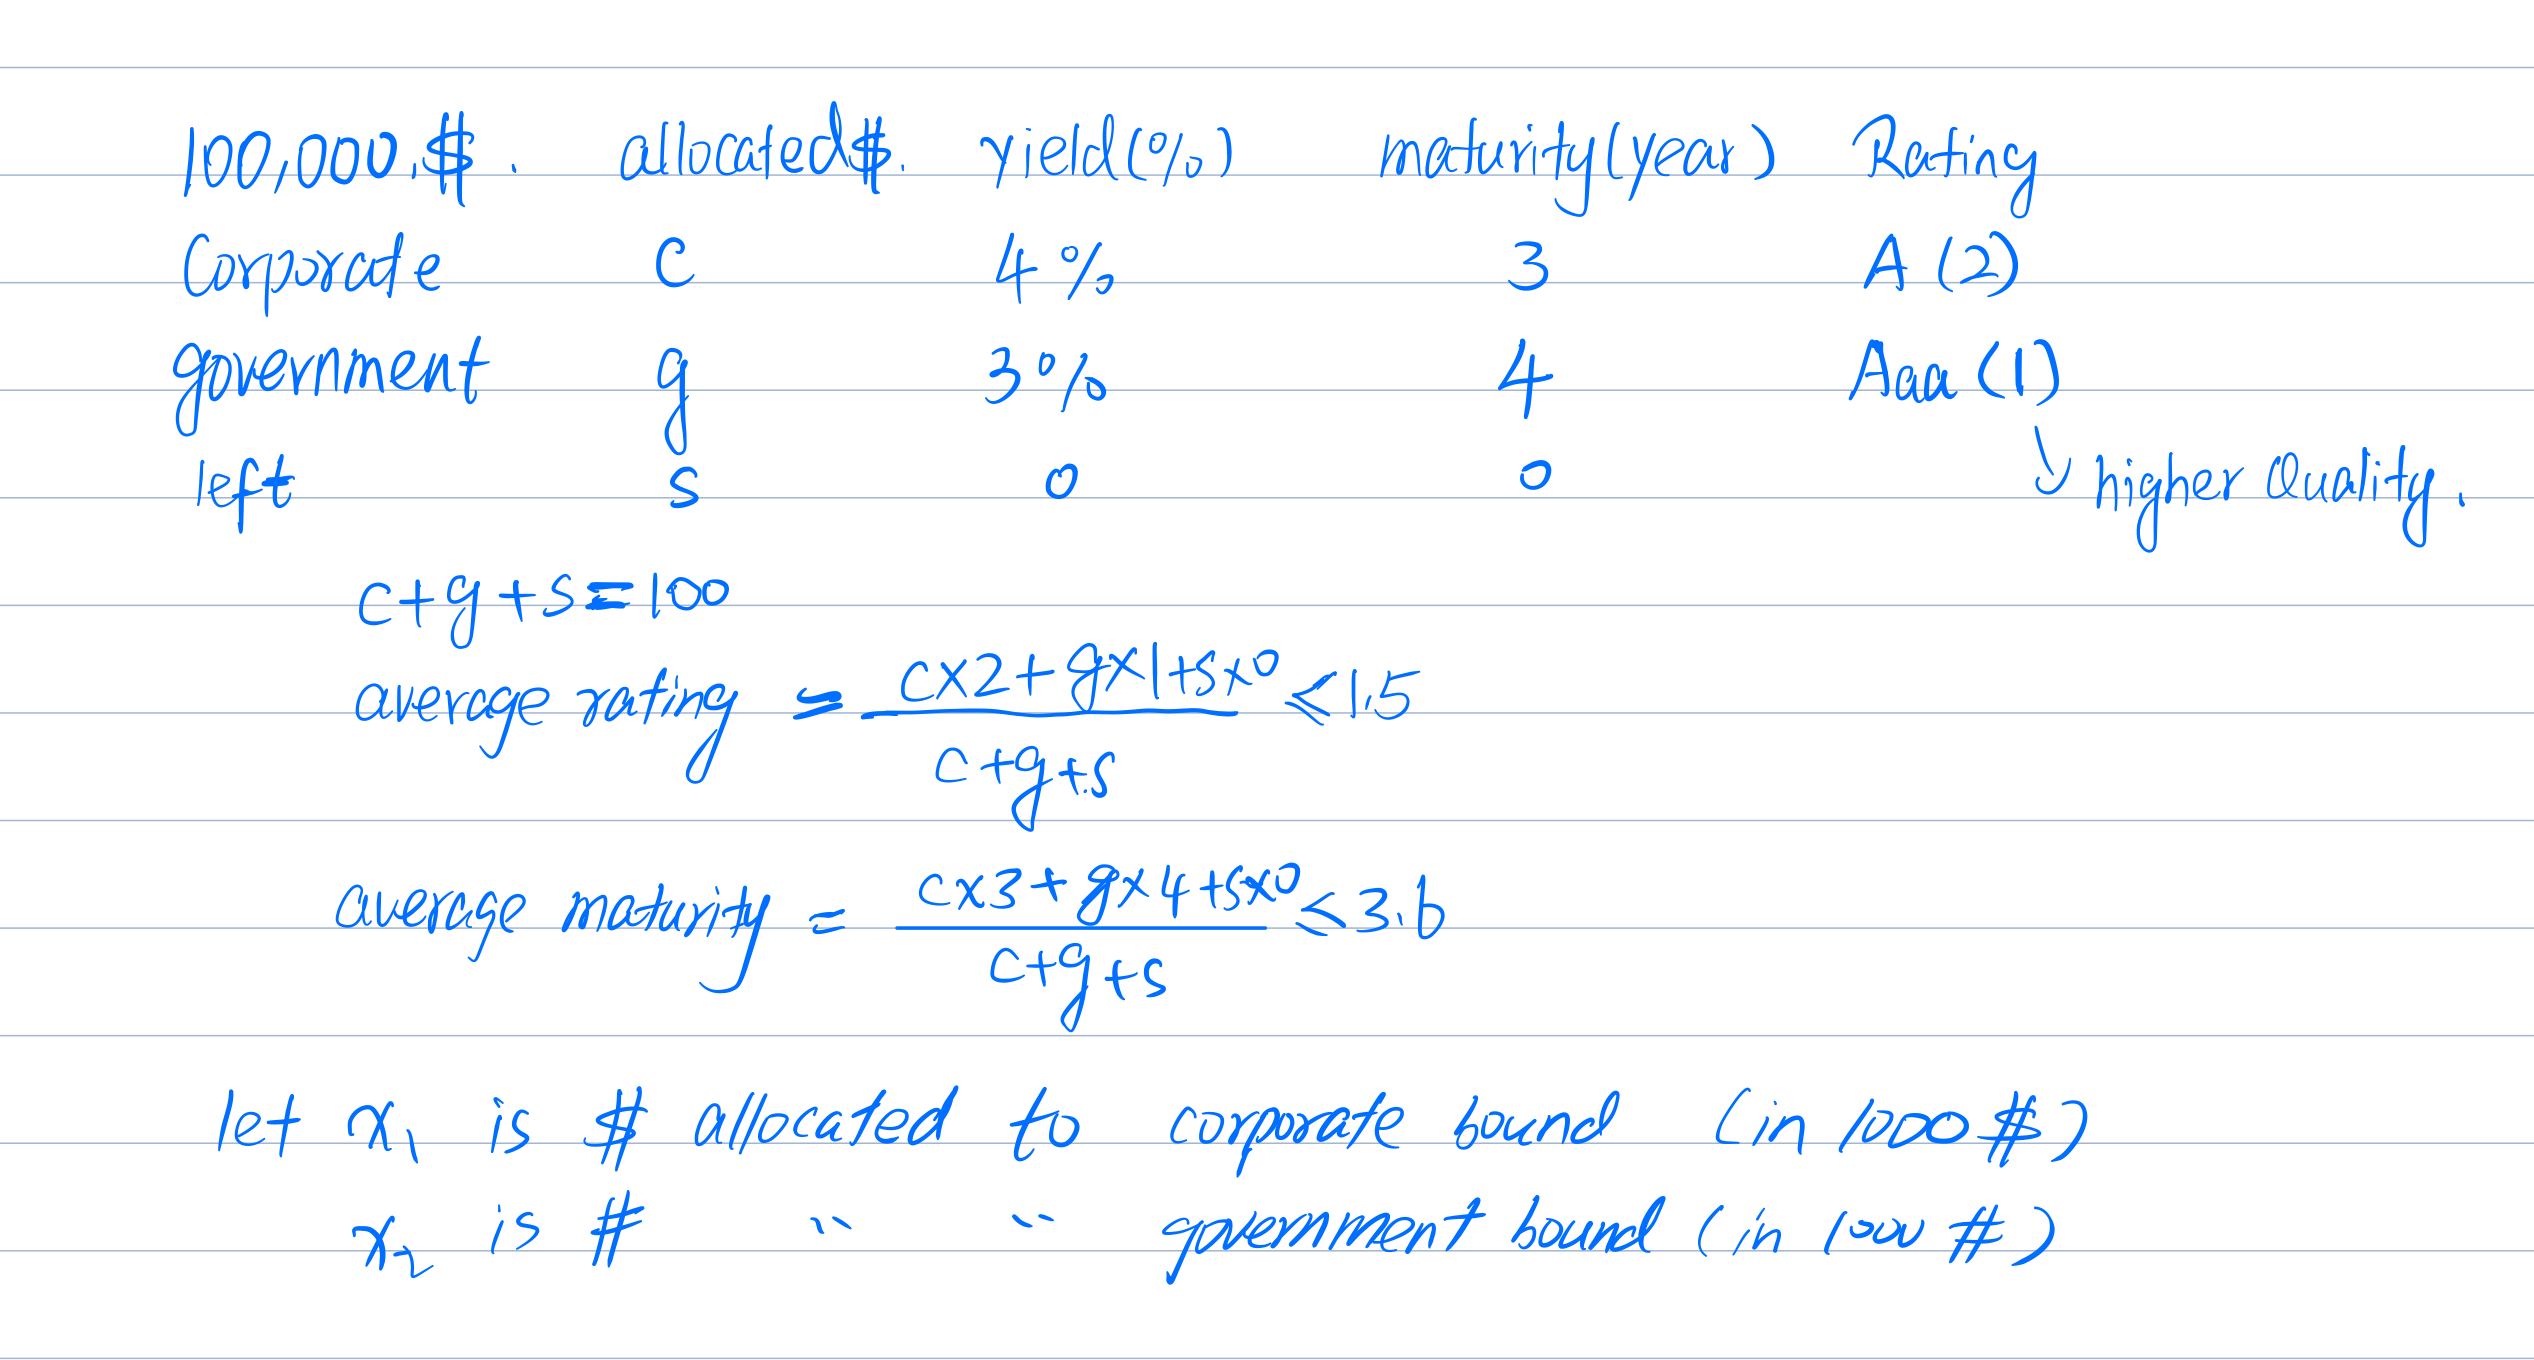 100,000.$. allocated $. yield(%) maturity(year) Rating
Corporate c 4% 3 A (2)
government g 3% 4 Aaa (1)
left s 0 0 ↘ higher Quality.
c+g+s=100
average rating = (c×2+g×1+s×0)/(c+g+s) ≤1.5
average maturity = (c×3+g×4+s×0)/(c+g+s) ≤3.6
let x₁ is $ allocated to corporate bound (in 1000 $)
x₂ is $ " " government bound (in 1000 $)